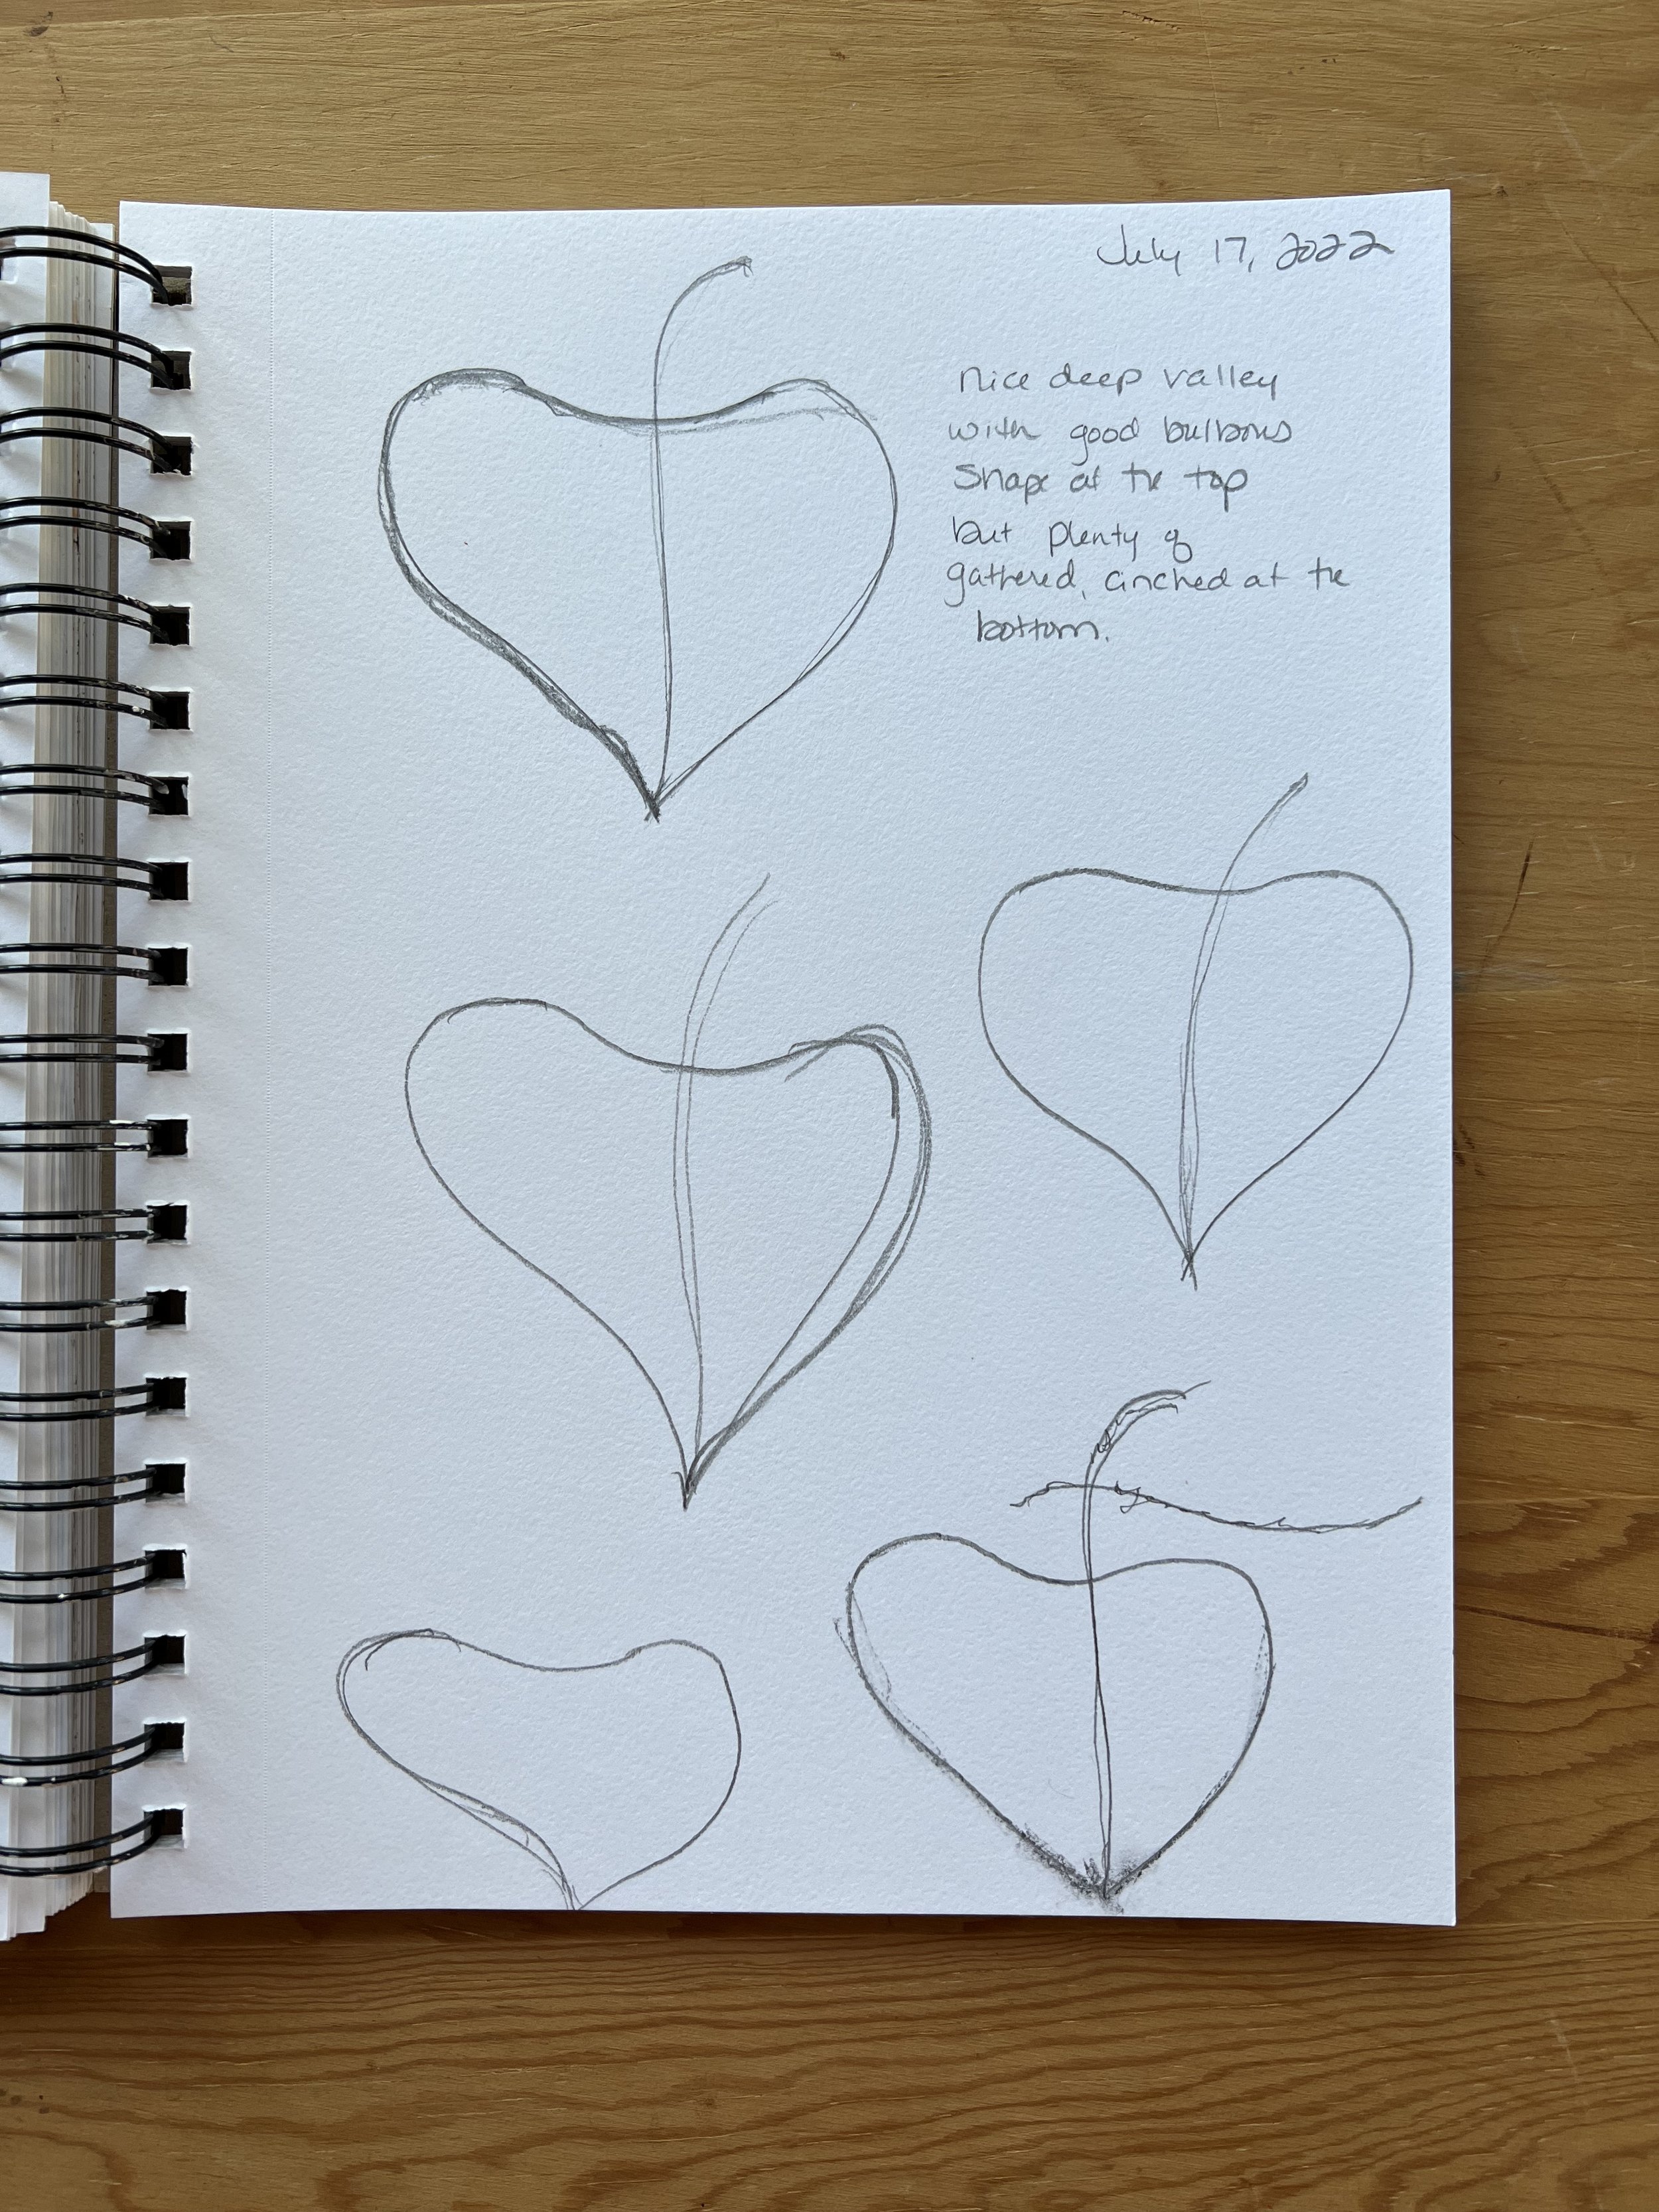 July 17, 2022
nice deep valley
with good bulbous
shape at the top
but plenty of
gathered, cinched at the
bottom.